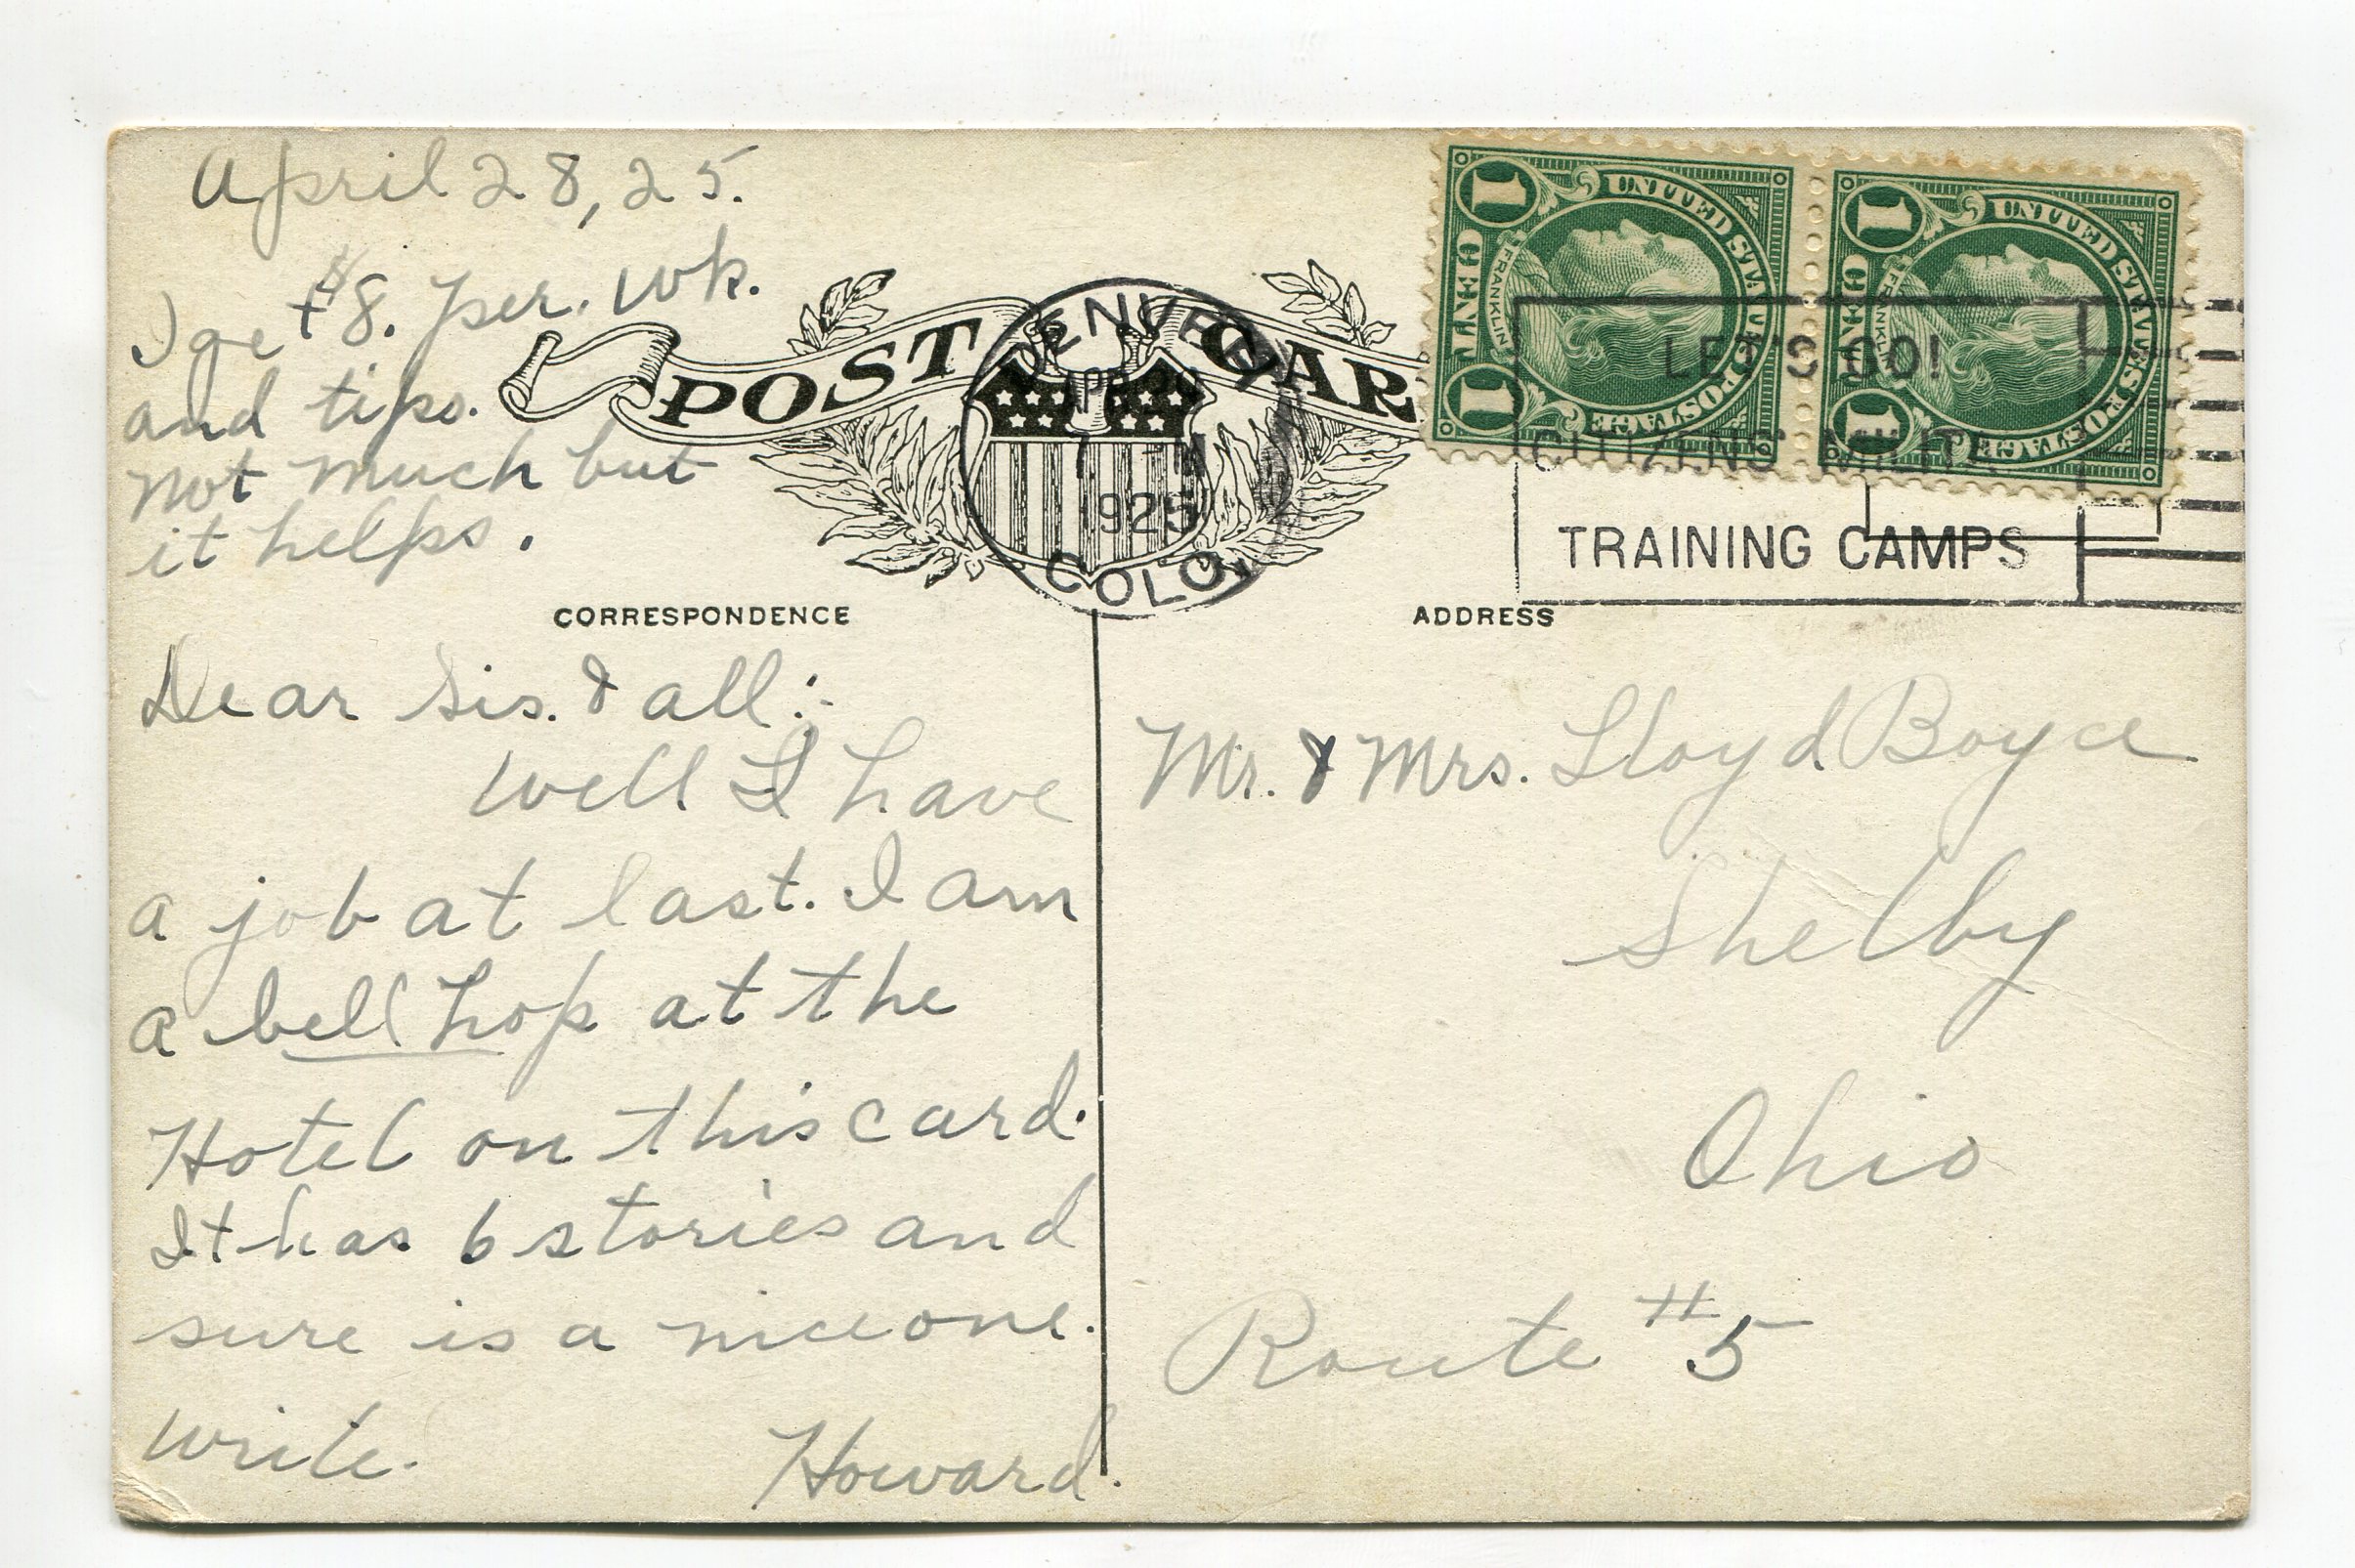 April 28, 25.
I get $8. per. wk.
and tips.
Not much but
it helps.
POST CAR
DENVER
1925
COLO.
LET'S GO!
CITIZENS MILITA
TRAINING CAMPS
1 UNITED STATES POSTAGE
FRANKLIN
ONE
1
1 UNITED STATES POSTAGE
FRANKLIN
1
CORRESPONDENCE
ADDRESS
Dear Sis. & all:-
Well I have
a job at last. I am
a bell hop at the
Hotel on this card.
It has 6 stories and
sure is a nice one.
Write.
Howard.
Mr. & Mrs. Lloyd Boyce
Shelby
Ohio
Route #5